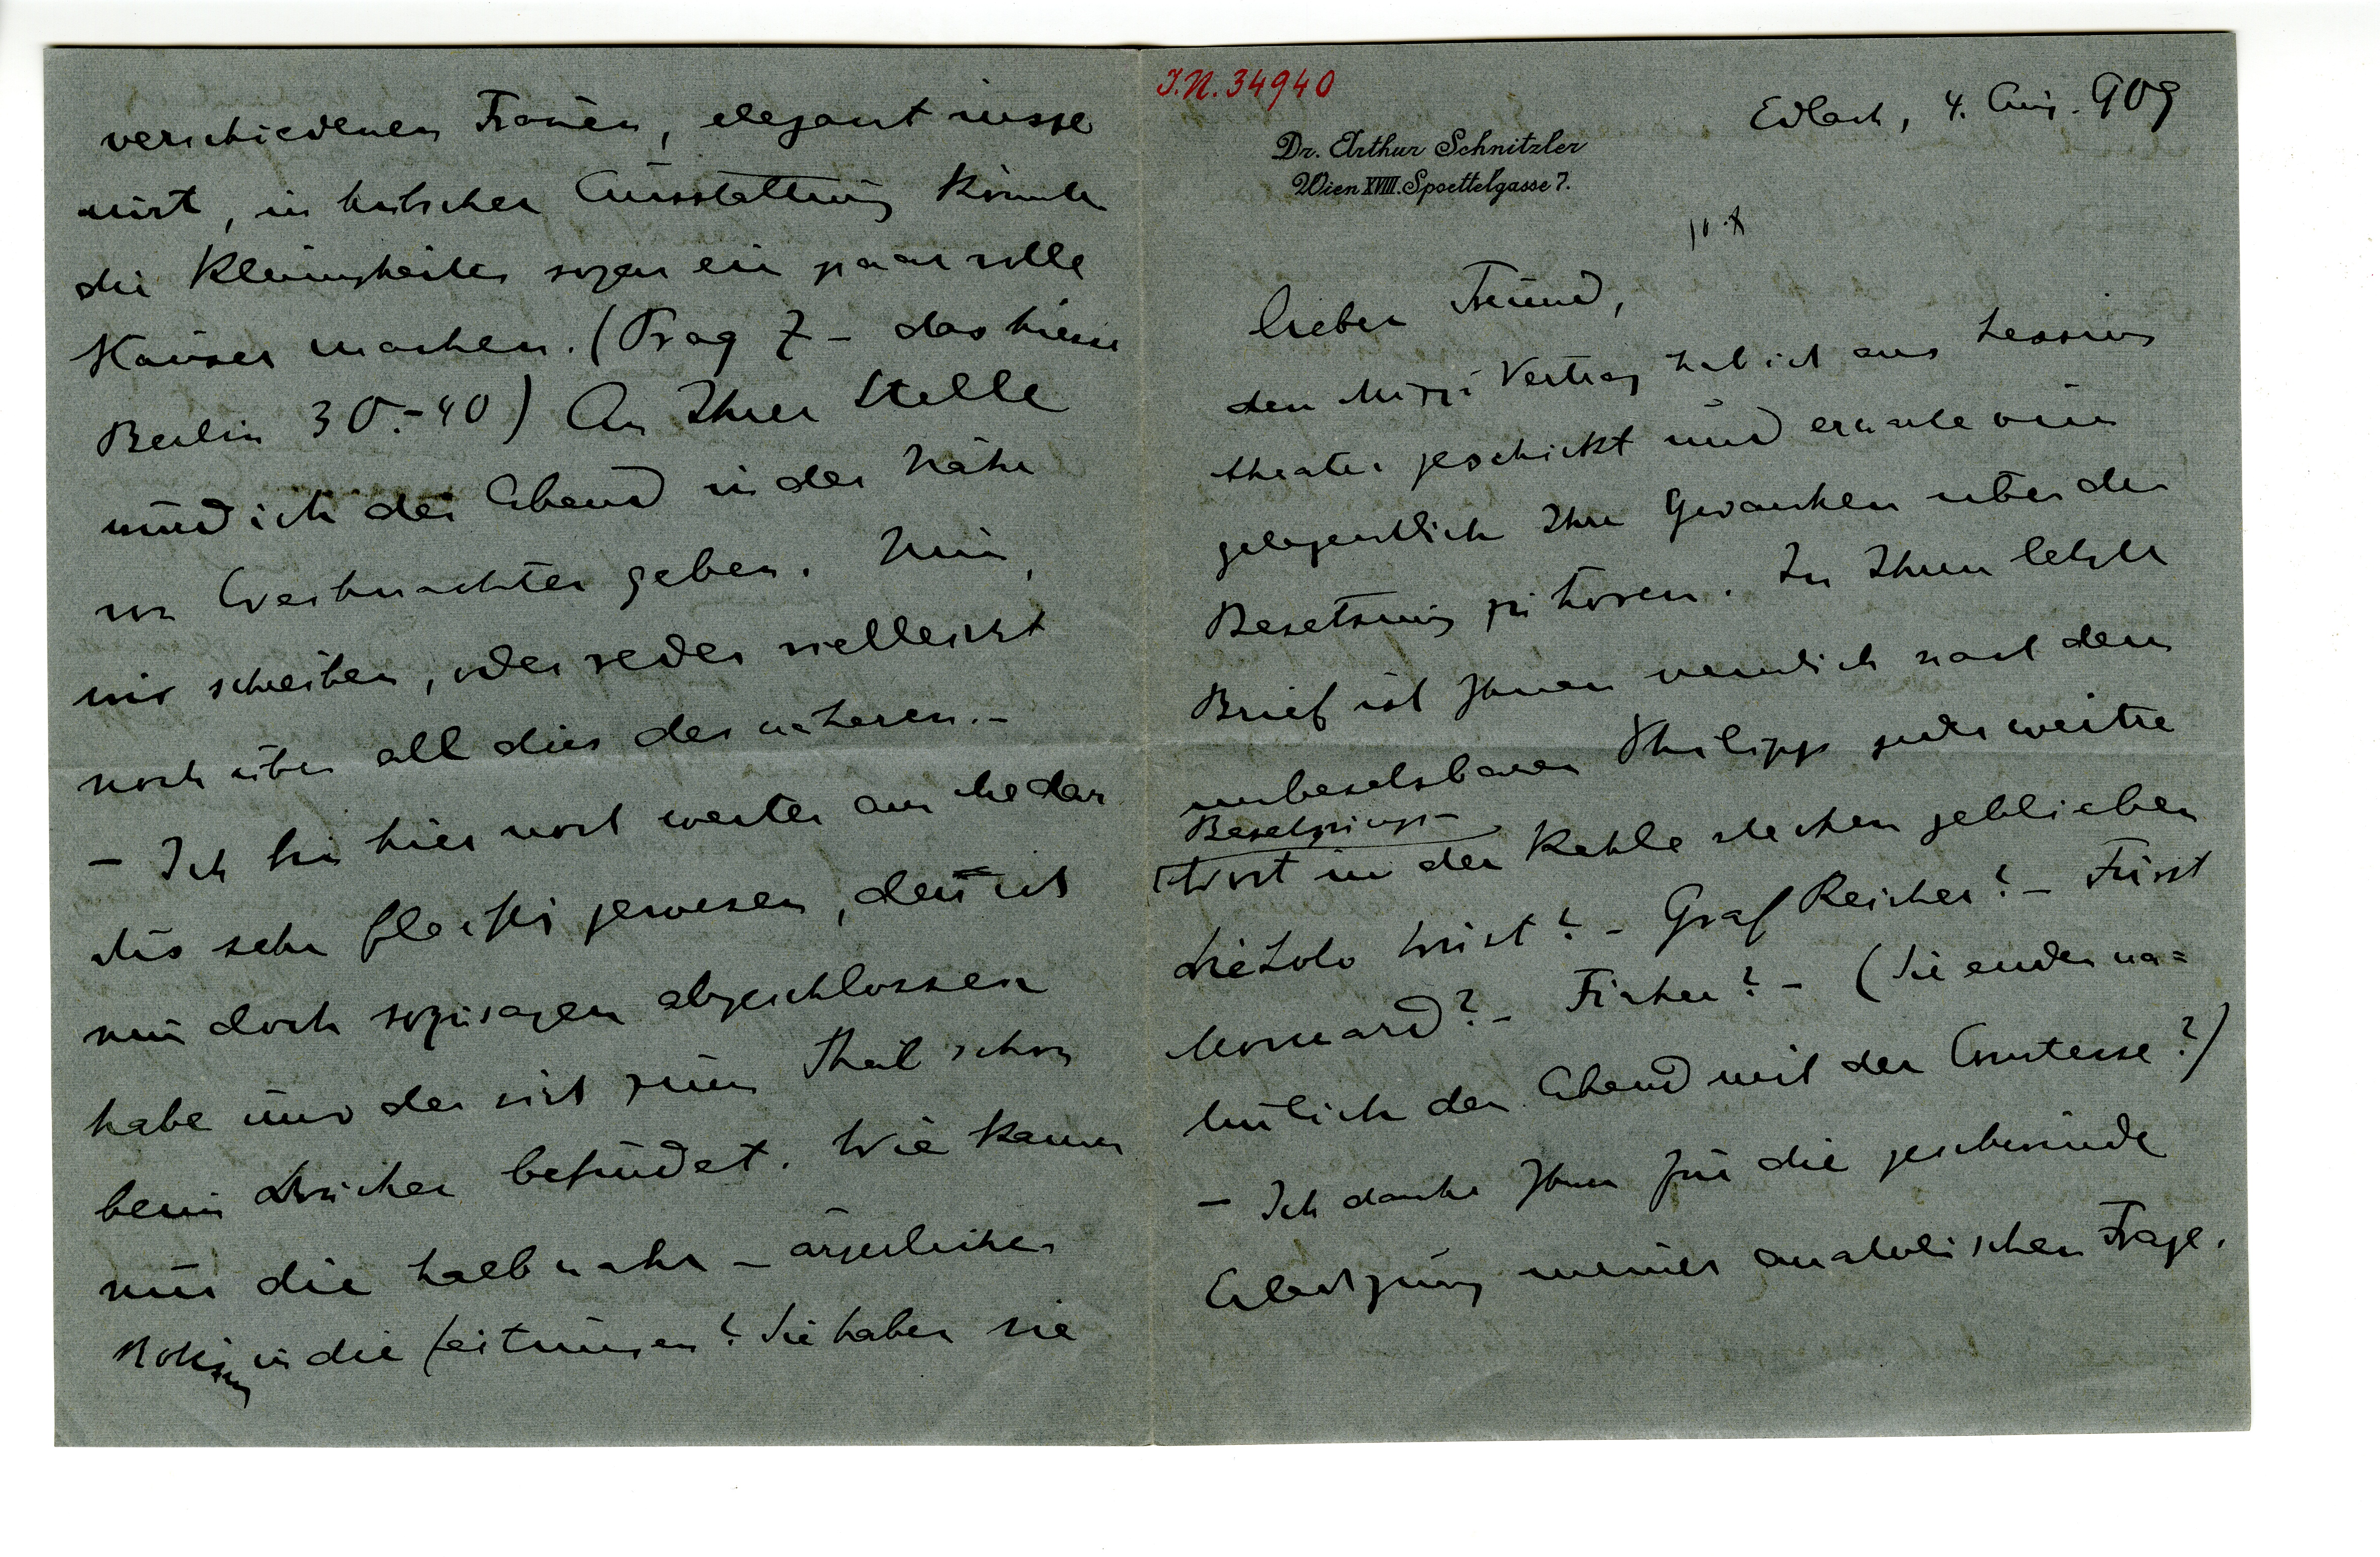 J.N. 34940
Edlach, 4. Aug. 909
Dr. Arthur Schnitzler
Wien XVIII. Spoettelgasse 7.
lieber Freund,
den Mizzi Vertrag hab ich ans Lessing
theater geschickt und erwarte nun
gelegentlich Ihre Gedanken über die
Besetzung zu hören. In Ihrem letzten
Brief ist Ihnen nemlich nach dem
unbesetzbaren Philipp jedes weitre
Besetzungs-
Wort in der Kehle stecken geblieben
Die Lolo Triesch? – Graf Reicher? – Fürst
Monnard? – Fischer? – (Sie enden na=
türlich den Abend mit der Comtesse?)
– Ich danke Ihnen für die geschwinde
Erledigung meiner anatolischen Frage.
verschiedenen Frauen, elegant insze
nirt, in hübscher Ausstattung könnte
die Kleinigkeiten sogar ein paar volle
Häuser machen. (Prag 7 – das hiesse
Berlin 30–40) An Ihrer Stelle
würd ich den Abend in der Nähe
von Weihnachten geben. Nun,
wir schreiben, oder reden vielleicht
noch über all dies des näheren. –
– Ich bin hier noch weiter am Medar
dus sehr fleißig gewesen, den ich
nun doch sozusagen abgeschlossen
habe und der sich zum Theil schon
beim Drucker befindet. Wie kam
nur die halbwahr – ärgerliche
Notiz in die Zeitungen? Sie haben sie